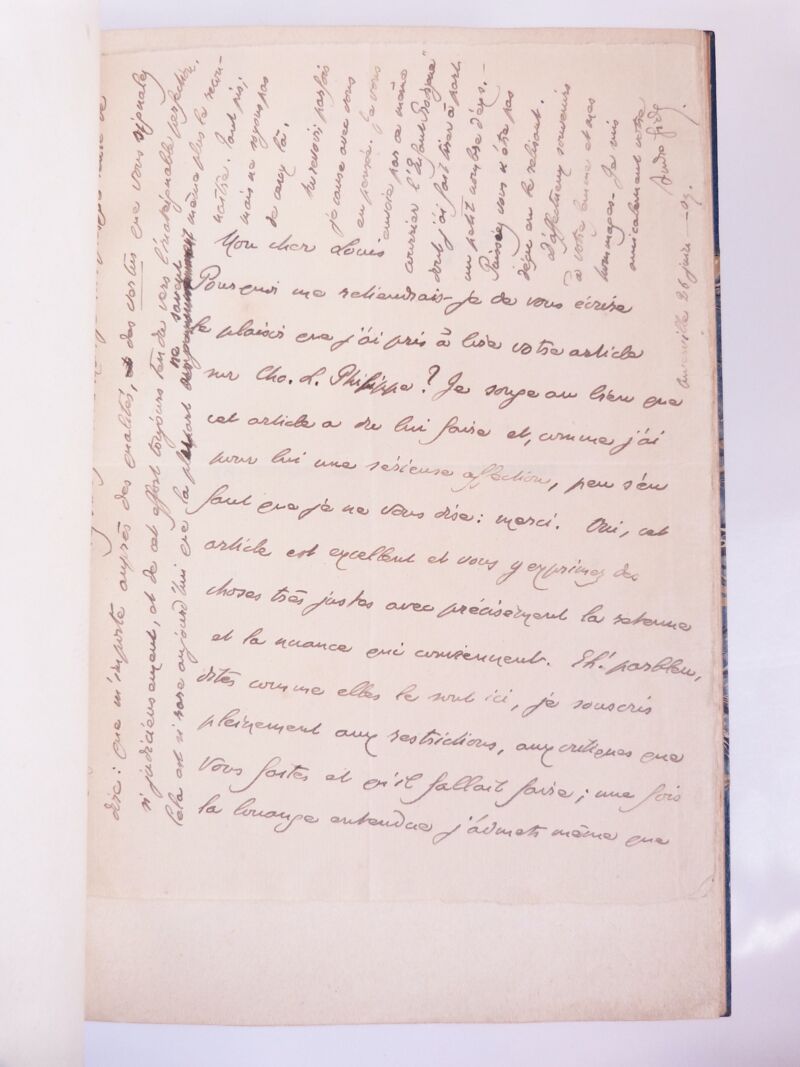 Mon cher Louis
Pourquoi me retiendrais-je de vous écrire
le plaisir que j'ai pris à lire votre article
sur Ch. L. Philippe ? Je songe au bien que
cet article a du lui faire et, comme j'ai
pour lui une sérieuse affection, peu s'en
faut que je ne vous dise : merci. Oui, cet
article est excellent et vous y exprimez des
choses très justes avec précisément la retenue
et la nuance qui conviennent. Eh ! parbleu,
dites comme elles le sont ici, je souscris
pleinement aux restrictions, aux critiques que
vous faites et qu'il fallait faire ; une fois
la louange entendue j'admets même que
dire : que m'importe auprès des qualités, des vertus que vous signalez
si judicieusement, et de cet effort toujours tendu vers l'inatteignable perfection.
Cela est si rare aujourd'hui que la plupart ne savent même plus le recon-
naître. Tant pis ;
mais ne soyons pas
de ceux là.
Au revoir ; parfois
je cause avec vous
en pensée. Je vous
envoie par ce même
courrier l'"Enfant Prodigue"
dont j'ai fait tirer à part
un petit nombre d'ex. –
Puissiez vous n'être pas
déçu en le relisant.
D'affectueux souvenirs
à votre femme et mes
hommages. Je suis
amicalement votre
André Gide.
Cuverville 26 juin